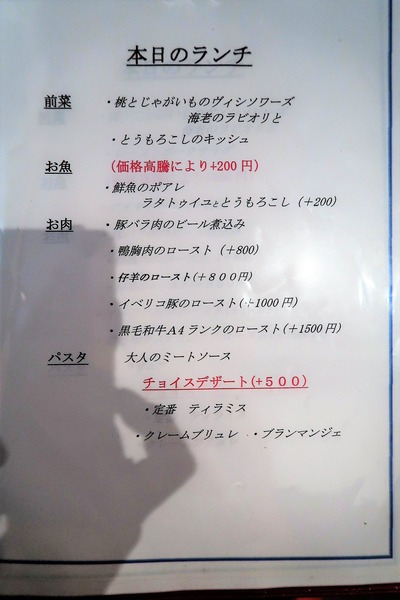 本日のランチ
前菜 ・桃とじゃがいものヴィシソワーズ
海老のラビオリと
・とうもろこしのキッシュ
お魚 (価格高騰により+200円)
・鮮魚のポアレ
ラタトゥイユととうもろこし（＋200）
お肉 ・豚バラ肉のビール煮込み
・鴨胸肉のロースト（＋800）
・仔羊のロースト(＋８００円)
・イベリコ豚のロースト(＋1000円)
・黒毛和牛A4ランクのロースト(＋1500円)
パスタ 大人のミートソース
チョイスデザート(+５００)
・定番 ティラミス
・クレームブリュレ ・ブランマンジェ